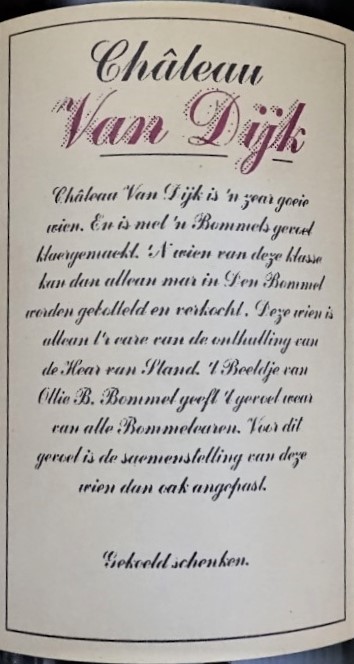 Château
Van Dijk
Château Van Dijk is 'n zear goeie
wien. En is mel 'n Bommels gevoel
klaergemackt. 'N wien van deze klasse
kan dan allean mar in Den Bommel
worden gebotteld en verkocht. Deze wien is
allean t'r eare van de onthulling van
de Hear van Stand. 't Beeldje van
Ollie B. Bommel geeft 't gevoel wear
van alle Bommelearen. Voor dit
gevoel is de saemenstelling van deze
wien dan oak angepast.
Gekoeld schenken.